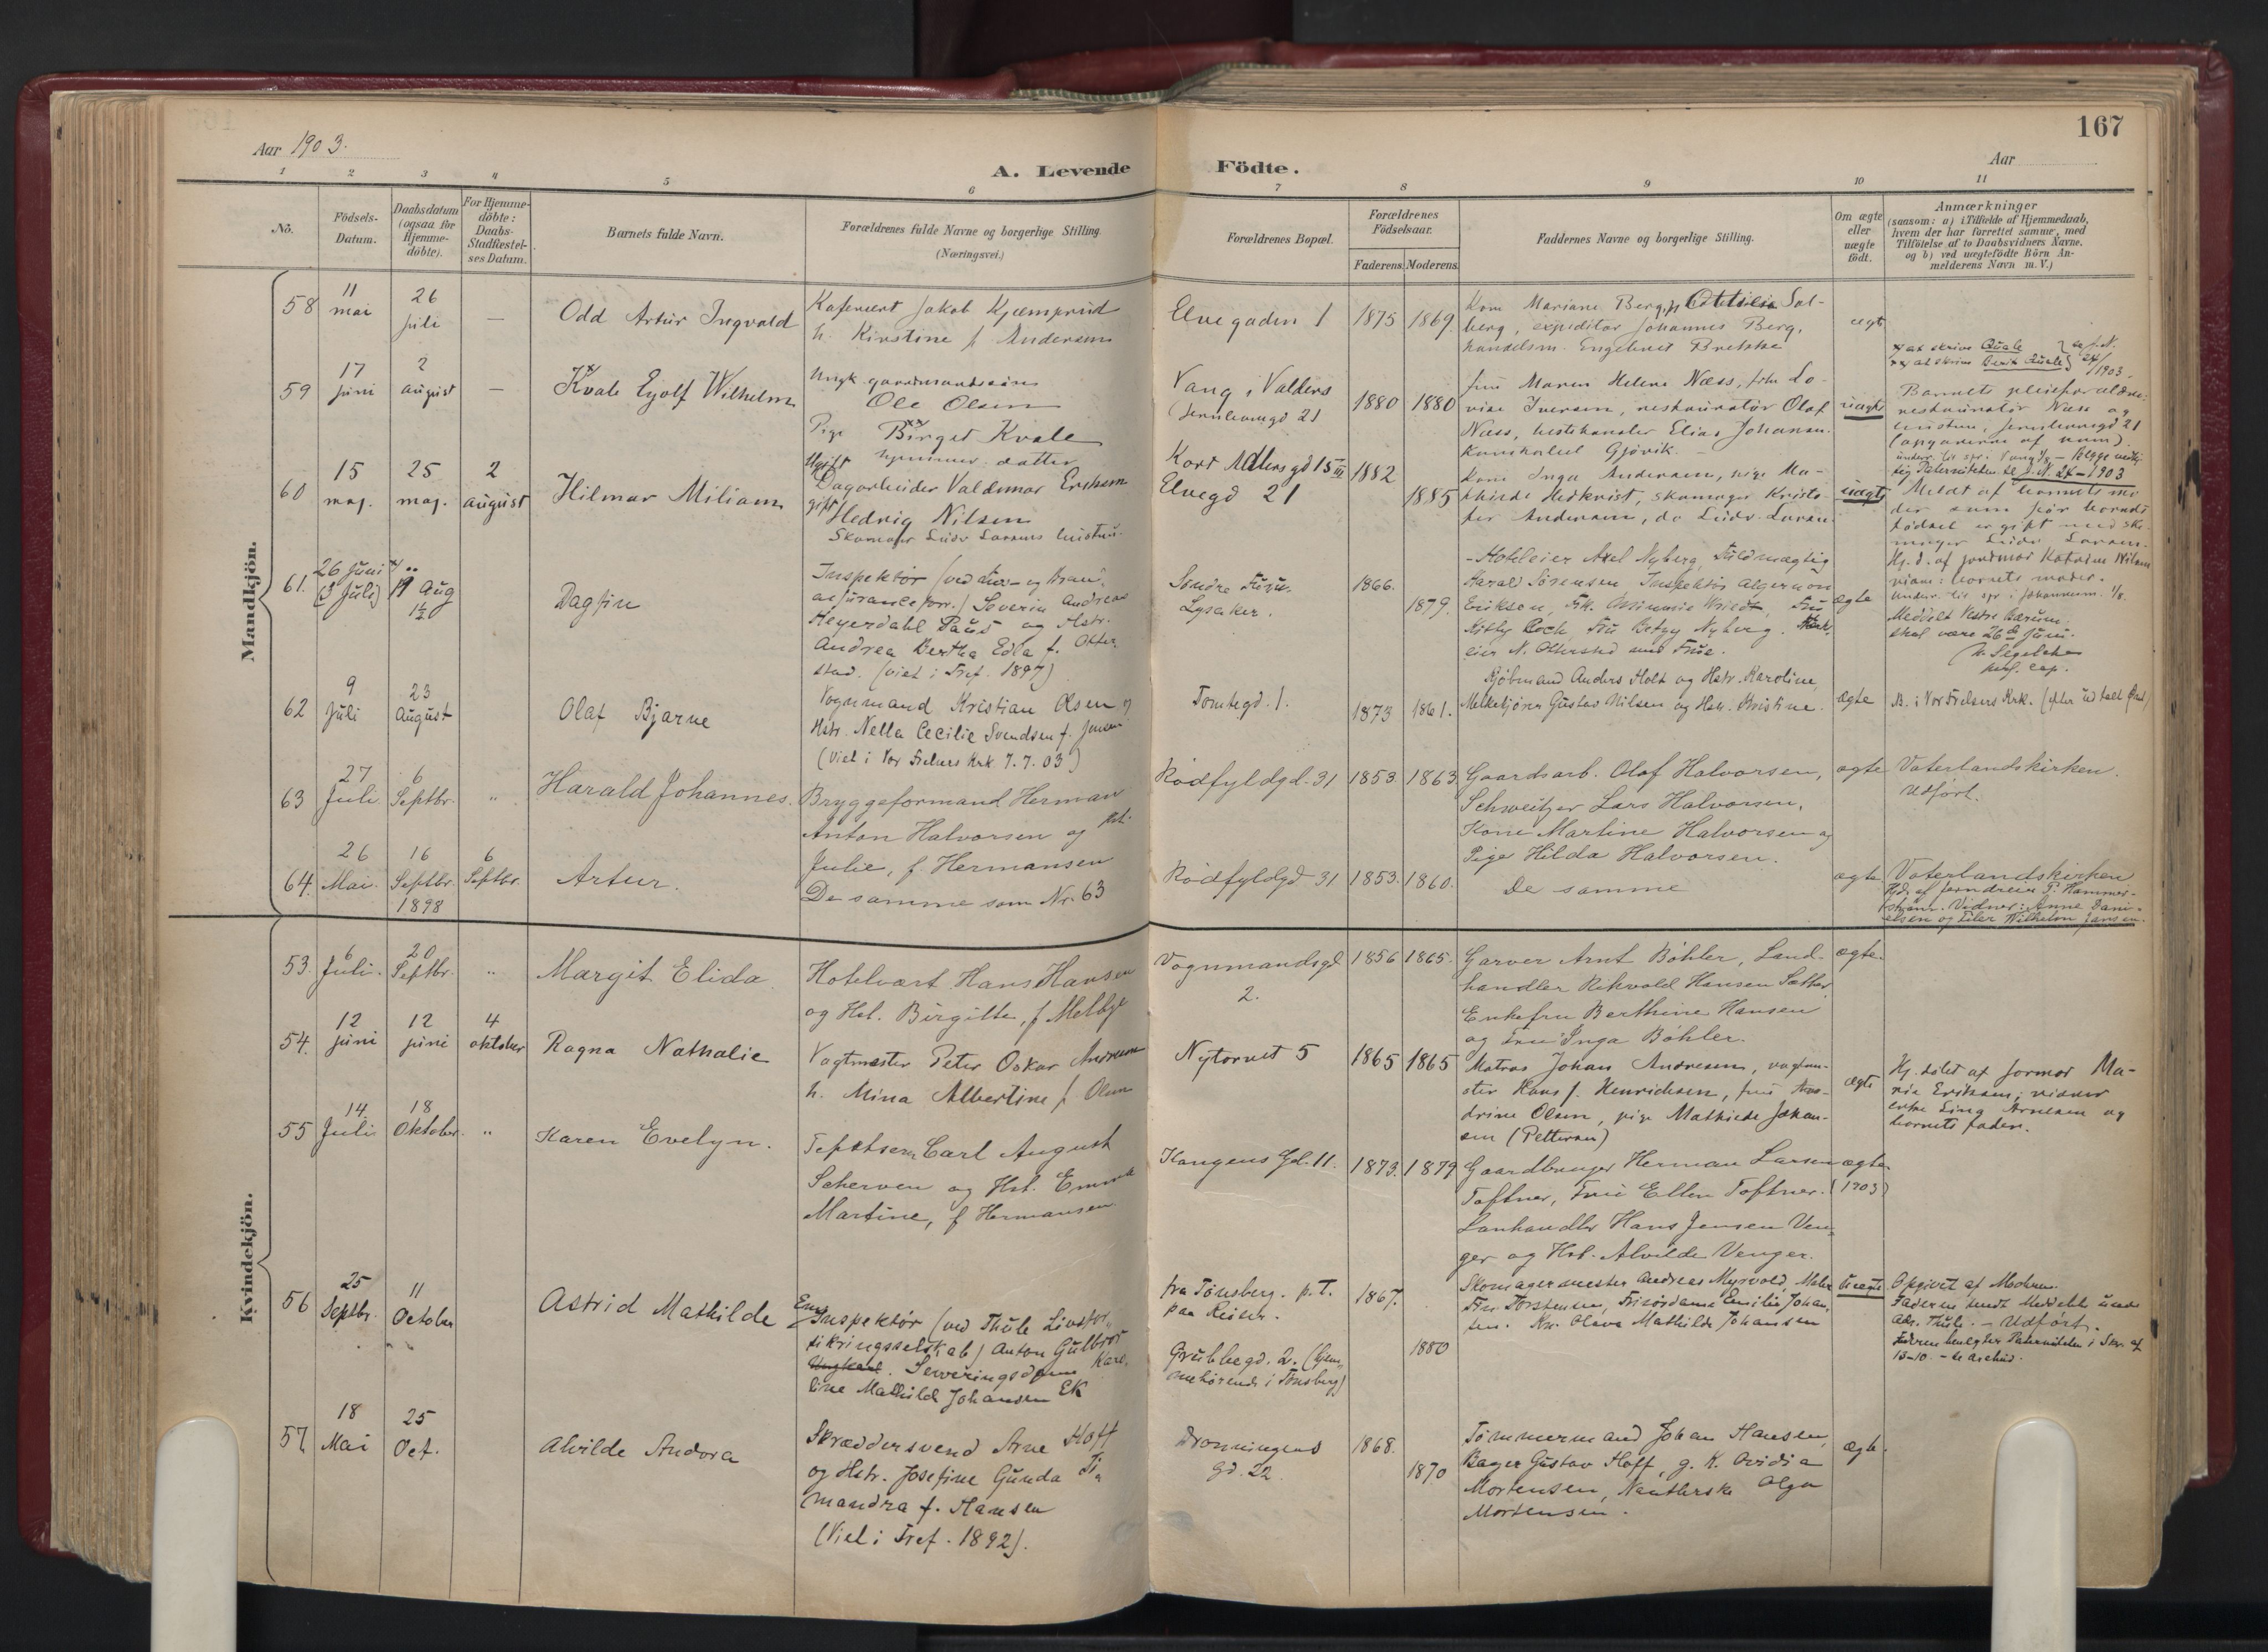 167
Aar 1903.
Aar
A. Levende Födte.
1 2 3 4 5 6 7 8 9 10 11
Nö.
Födsels-
Datum.
Daabsdatum
(ogsaa for
Hjemme-
döbte).
For Hjemme-
döbte:
Daabs-
Stadfæstel-
ses Datum.
Barnets fulde Navn.
Forældrenes fulde Navne og borgerlige Stilling.
(Næringsvei.)
Forældrenes Bopæl.
Forældrenes
Födselsaar.
Faderens. Moderens.
Faddernes Navne og borgerlige Stilling.
Om ægte
eller
uægte
födt.
Anmærkninger
(saasom: a) i Tilfælde af Hjemmedaab,
hvem der har forrettet samme, med
Tilföielse af to Daabsvidners Navne,
og b) ved uægtefödte Börn An-
melderens Navn m. V.)
Mandkjön.
58
11
mai
26
juli
—
Odd Artur Ingvald
Kafevert Jakob Kjemprud
h. Kirstine f Andersen
Elvegaden 1
1875 1869
Kone Mariane Berg, Sol-
berg, expeditør Johannes Berg,
handelsm. Engebret Brekke
ægte
59
17
juni
2
august
—
Kvale Eyolf Wilhelm
Ungk. gaardmandssøn
Ole Olsen
Pige Birget Kvale
hjemmev. datter
Vang, Valders
Jernbanegd 21
1880 1880
fru Maren Helene Næss, frk Lo-
vise Iversen, restauratør Olaf
Næss, hestehandler Elias Johansen
Gjövik.
uægte
x at skrive Quale
xx at skrive Quale
24/ 1903
Barnets pleieforældre:
restauratør Næss og
hustru, Jernbanegd 21
60
15
maj.
25
maj.
2
august
Hilmar Miliam
Ugift
Dagarbeider Valdemar
gift
Hedvig Nilsen
Skomager Ludv Larsens hustru
Kort Adlersgd 15 III
Elvegd 21
1882
1885
Kone Inga Andersen, pige Ma-
thilde Hedkvist, skomager Kristo-
fer Andersen, do Ludv. Larsen
uægte
Meldt af barnets mo
der som før barnets
fødsel er gift med sko-
mager Ludv Larsen.
Hj. d. af jordmor Katrine Nilsen
barnets moder.
61.
26 Juni
(3 Juli)
19 Aug
Dagfin
Inspektør (ved Liv- og Bran-
assuranceforr.) Severin Andreas
Heyerdahl Paus og Hstr.
Andrea Bertha Edla f. Otter-
stad. (viet i Tref. 1897)
Søndre Furu.
Lysaker.
1866.
1879.
-Hoteleier Axel Nyberg, Fuldmægtig
Harald Sørensen, Inspektør Algernon
Eriksen, Frk. Fru
Kitty Bock, Fru Betzy Nyberg.
eier N. Otterstad med Frue.
ægte
Meddelt Vestre Bærum.
skal være 26de Juni.
62
9
Juli
23
August
Olaf Bjarne
Vognmand Kristian Olsen og
Hstr. Nella Cecilie Svendsen f. Jensen
(Viet i Vor Frelsers Krk 7.7.03)
Tomtegd. 1.
1873 1861.
Kjøbmand Anders Holt og Hstr. Karoline,
Melkekjører Gustav Nilsen og Hstr. Kristine.
ægte
B. i Vor Frelsers Krk.
63
27
Juli
6
Septbr.
"
Harald Johannes.
Bryggeformand Herman
Anton Halvorsen og Hst.
Julie, f Hermansen
Rødfyldgd. 31
1853. 1863
Gaardsarb. Olaf Halvorsen,
Schweitzer Lars Halvorsen,
Kone Martine Halvorsen og
Pige Hilda Halvorsen.
ægte
Vaterlandskirken.
Udført.
64.
26
Mai.
16
Septbr.
1898
6
Septbr.
Artur.
De samme som Nr. 63
Rødfyldgd 31
1853. 1860.
De samme
ægte
Vaterlandskirken
Vidner: Anne Dani-
elsen og Eiler Wilhelm Jansen.
Kvindekjön.
53.
6
Juli.
20
Septbr.
"
Margit Elida.
Hotelvært Hans Hansen
og Hst. Birgitte, f Melbye
Vognmandsgd
2.
1856 1865.
Garver Arnt Bøhler, Land-
handler Rikvold Hansen Sæther,
Enkefru Berthine Hansen
og Fru Inga Bøhler.
ægte.
54.
12
juni
12
juni
4
oktober
Ragna Nathalie
Vagtmester Peter Oskar Andresen
h. Mina Albertine f Olsen
Nytorvet 5
1865 1865
Matros Johan Andresen, vagtme-
ster Hans J. Henrichsen, fru An-
drine Olsen, pige Mathilde Johan-
sen (Pettersen)
ægte
Hj. døbt af farmor Ma-
rie Eriksen; vidner
enke Lina Arnesen og
barnets fader.
55
14
Juli
18
Oktober.
"
Karen Evelyn.
Carl August
Scherven og Hst. Emma
Martine, f Hermansen
Kongens Gd. 11.
1873. 1879
Gaardbruger Herman Larsen
Toftner, Fru Ellen Toftner.
Hans Jensen Ven-
ger og Hst. Alvilde Venger.
ægte
(1903)
56
25
Septbr.
11
October
Astrid Mathilde
Em.
Inspektør (ved Thule Livsfor-
sikringsselskab) Anton Gulbr
Ungkarl. Serveringsdame Karo-
line Mathilde Johansen EK
fra Tønsberg. p.T.
paa Reiser.
Grubbegd. 2. (hjem-
mehørende i Tønsberg)
1867.
1880
Skomagermester Andreas Myrvold, Maler
Torstensen, Frisørdame Emilie Johan-
sen. Olava Mathilde Johansen
uægte
Opgivet af Moderen.
Faderen sendt Meddelelse under
Adr. Thule. - Udført.
13-10. - se Archiv.
57.
18
Mai
25
Oct.
Alvilde Andora
Skræddersvend Arne Hoff
og Hstr. Josefine Gunda Ti-
mandra f. Hansen
(Viet i Tref. 1892).
Dronningens
gd. 22.
1868.
1870
Tømmermand Johan Hansen,
Bager Gustav Hoff, g. K. Ovidia
Mortensen, Olga
Mortensen.
ægte.